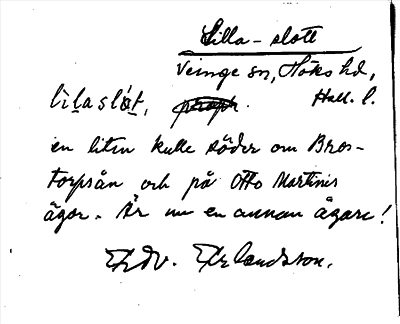 Lilla-slott
Veinge sn, Höks hd,
Hall. l.
lìḷaslót,
en liten kulle söder om Bros-
torpsån och på Otto Martinis
ägor. Är nu en annan ägare!
Edv. Erlandsson.